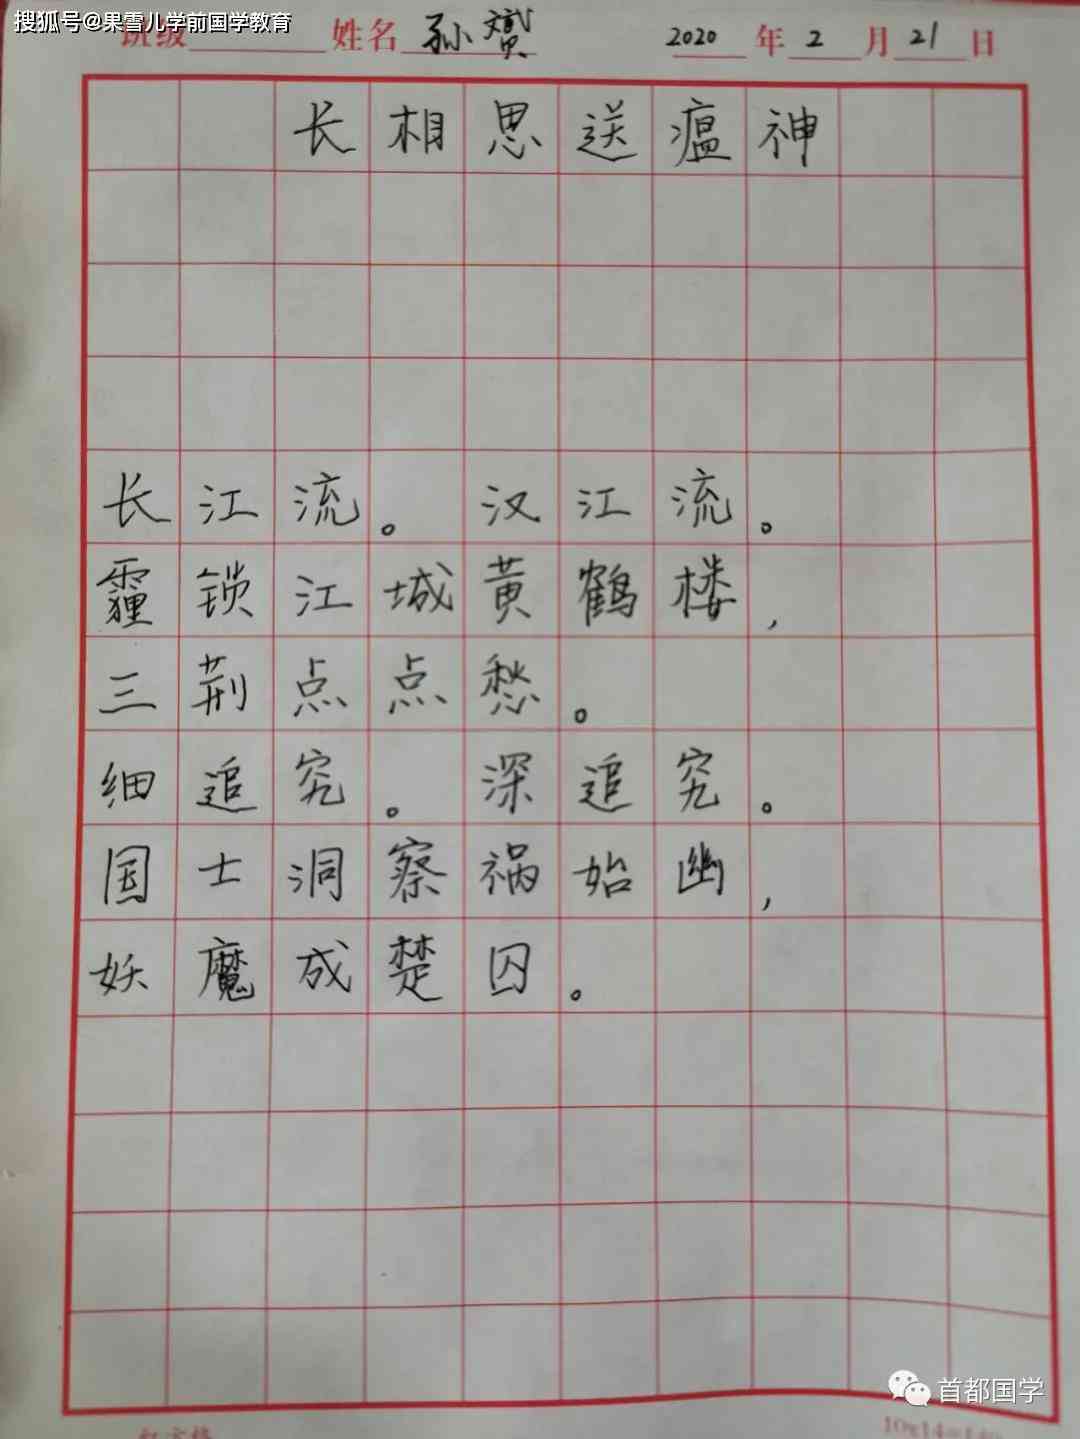 搜狐号@果雪儿学前国学教育
班级 姓名 孙赟 2020 年 2 月 21 日
长相思送瘟神
长江流。汉江流。
霾锁江城黄鹤楼，
三荆点点愁。
细追究。深追究。
国士洞察祸始幽，
妖魔成楚囚。
首都国学